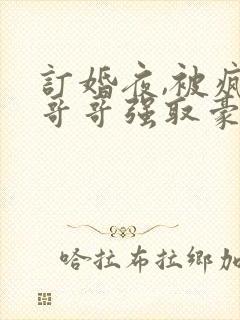 訂婚夜,被瘋
哥哥强取豪
哈拉布拉鄉加